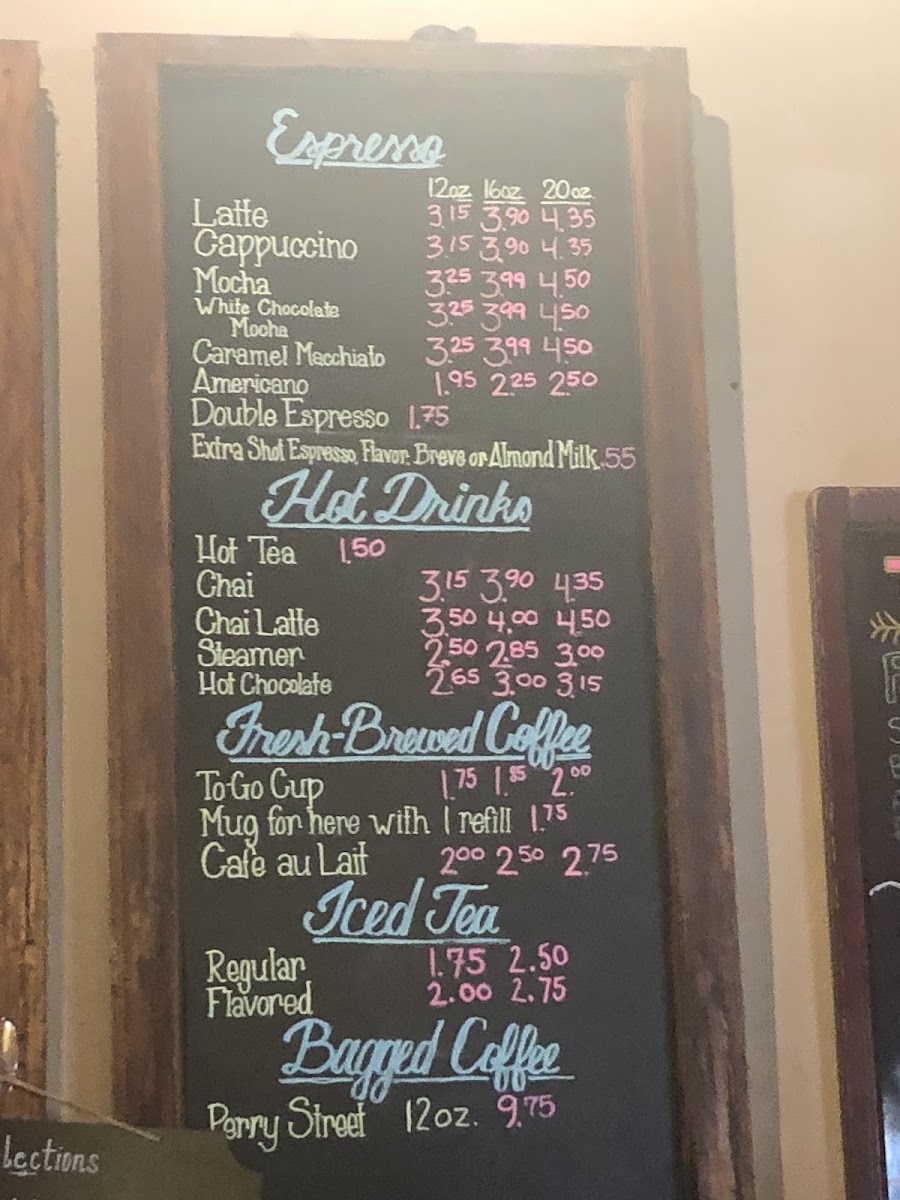 Espresso
12oz 16oz 20oz
Latte 3.15 3.90 4.35
Cappuccino 3.15 3.90 4.35
Mocha 3.25 3.99 4.50
White Chocolate
Mocha 3.25 3.99 4.50
Caramel Macchiato 3.25 3.99 4.50
Americano 1.95 2.25 2.50
Double Espresso 1.75
Extra Shot Espresso, Flavor, Breve or Almond Milk .55
Hot Drinks
Hot Tea 1.50
Chai 3.15 3.90 4.35
Chai Latte 3.50 4.00 4.50
Steamer 2.50 2.85 3.00
Hot Chocolate 2.65 3.00 3.15
Fresh-Brewed Coffee
To-Go Cup 1.75 1.85 2.00
Mug for here with 1 refill 1.75
Cafe au Lait 2.00 2.50 2.75
Iced Tea
Regular 1.75 2.50
Flavored 2.00 2.75
Bagged Coffee
Perry Street 12oz. 9.75
lections